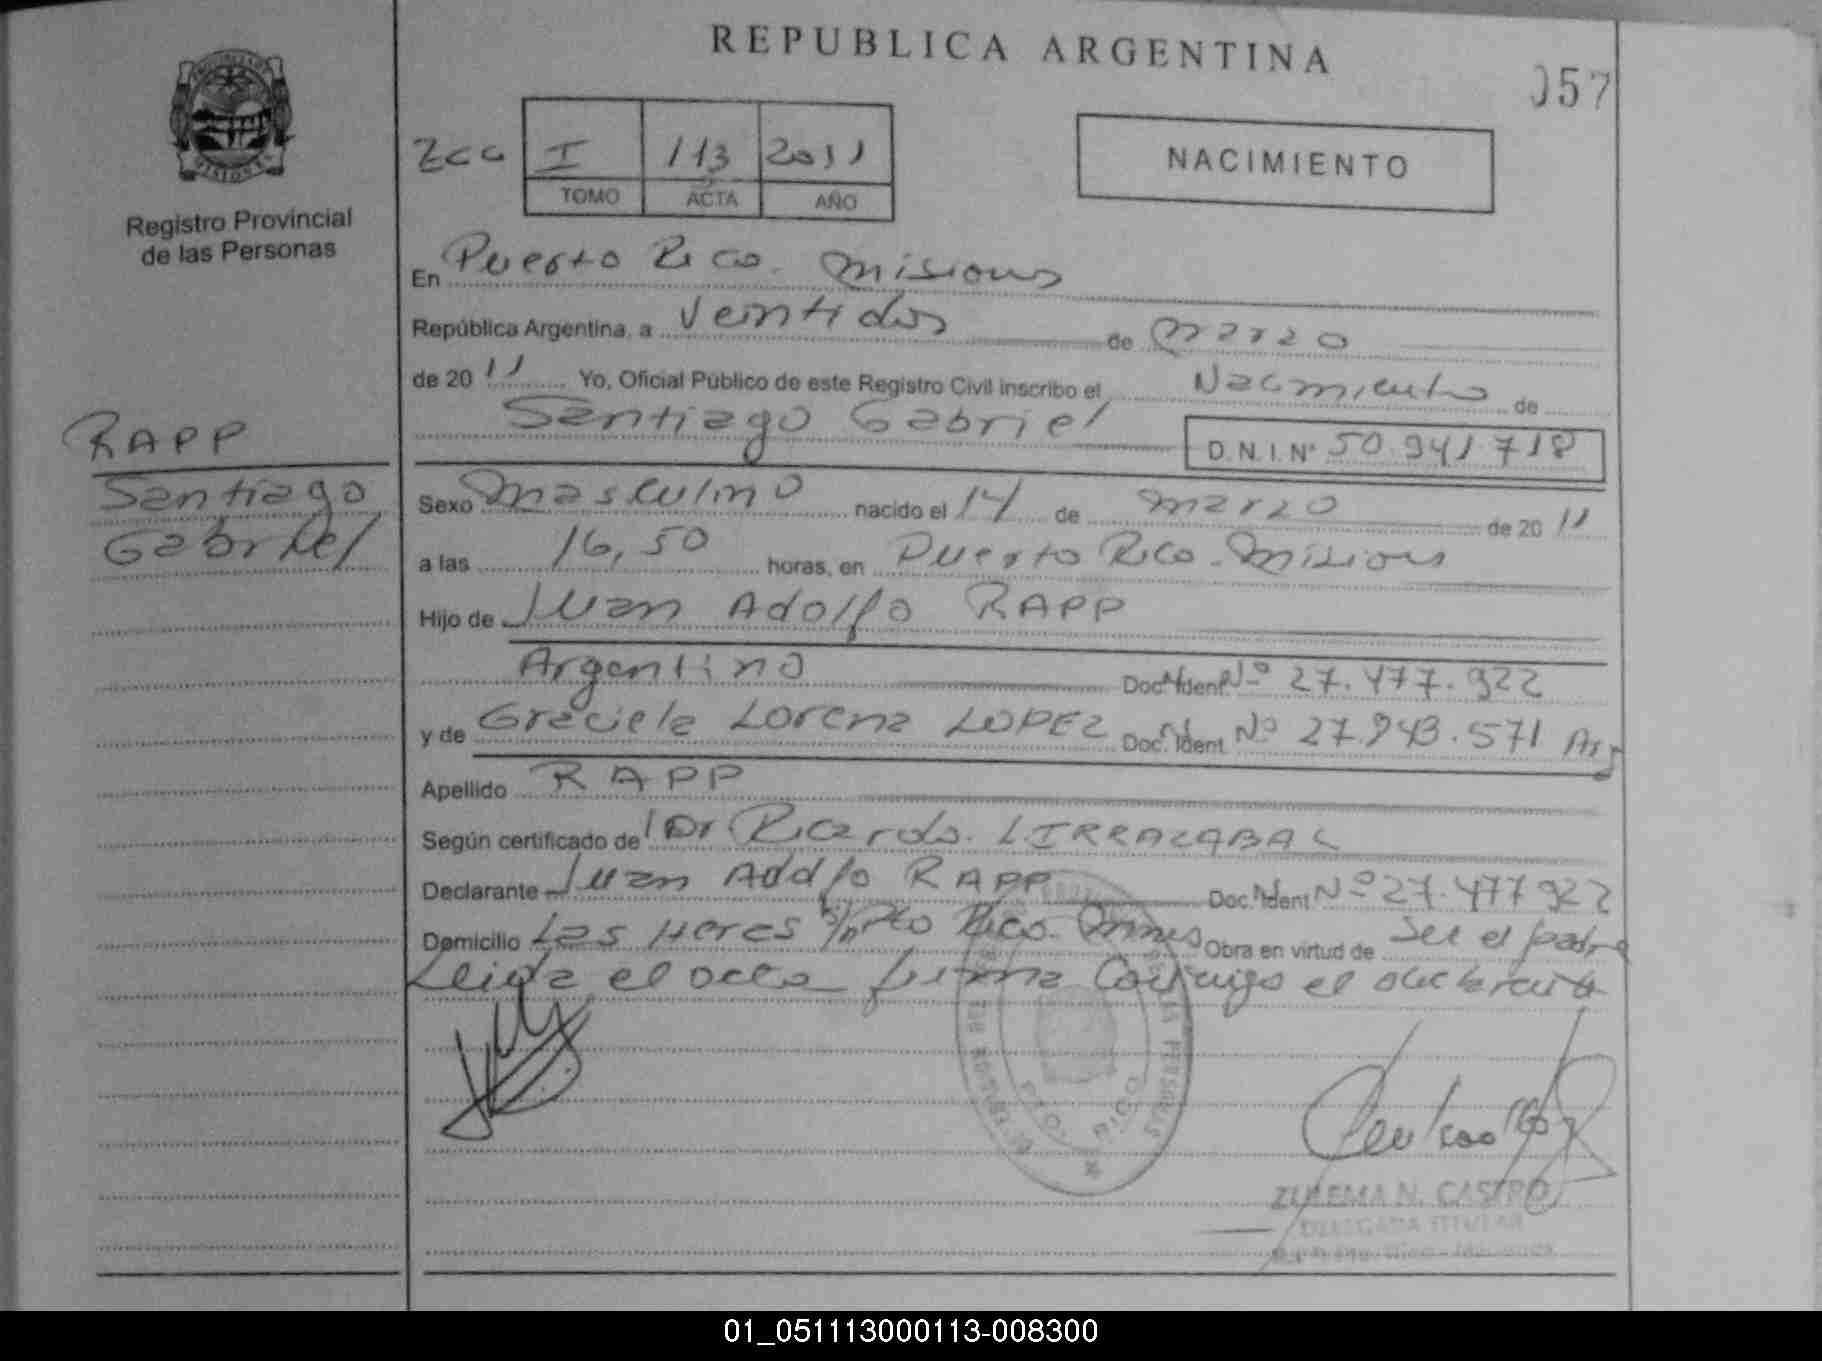 REPUBLICA ARGENTINA
057
2cc I 113 2011
TOMO ACTA AÑO
NACIMIENTO
MISIONES
Registro Provincial
de las Personas
En Puerto Rico. Misiones
República Argentina, a veintidos de marzo
de 2011 Yo, Oficial Público de este Registro Civil inscribo el Nacimiento de
Santiago Gabriel D.N.I.Nº 50.941.718
RAPP
Santiago
Gabriel
Sexo masculino nacido el 14 de marzo de 2011
a las 16,50 horas, en Puerto Rico. Misiones
Hijo de Juan Adolfo RAPP
Argentino Doc. Ident Nº 27.477.922
y de Graciela Lorena LOPEZ Doc. Ident Nº 27.943.571 Arg
Apellido RAPP
Según certificado de Dr Ricardo. LIRRAZABAL
Declarante Juan Adolfo RAPP Doc. Ident Nº 27.477922
Domicilio Las Heras s/n Pto Rico. Mnes Obra en virtud de Ser el padre
Leida el acta firma conmigo el declarante
ZULEMA N. CASTRO
DELEGADA TITULAR
01_051113000113-008300